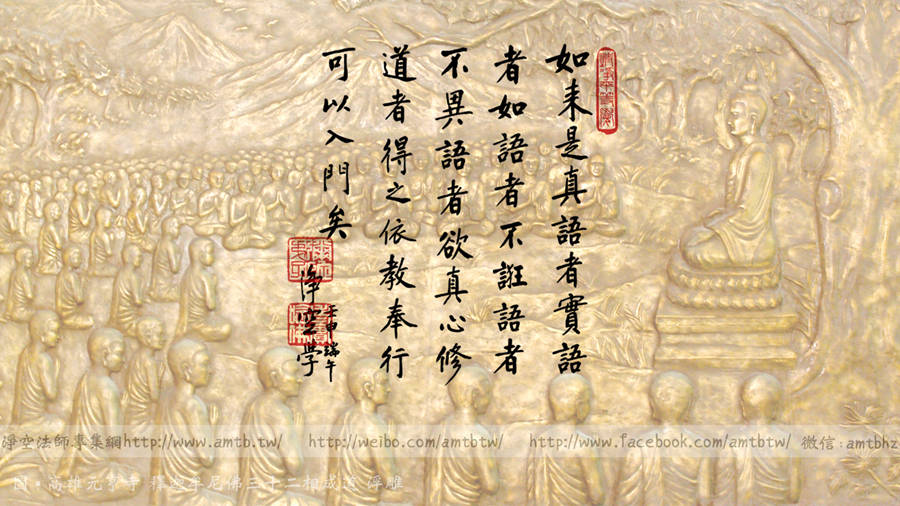 如来是真語者實語
者如語者不誑語者
不異語者欲真心修
道者得之依教奉行
可以入門矣
壬申端午
淨空学
淨空法師專集網http://www.amtb.tw/ http://weibo.com/amtbtw/ http://www.facebook.com/amtbtw/ 微信:amtbhz
圖・高雄元亨寺 釋迦牟尼佛三十二相成道 浮雕